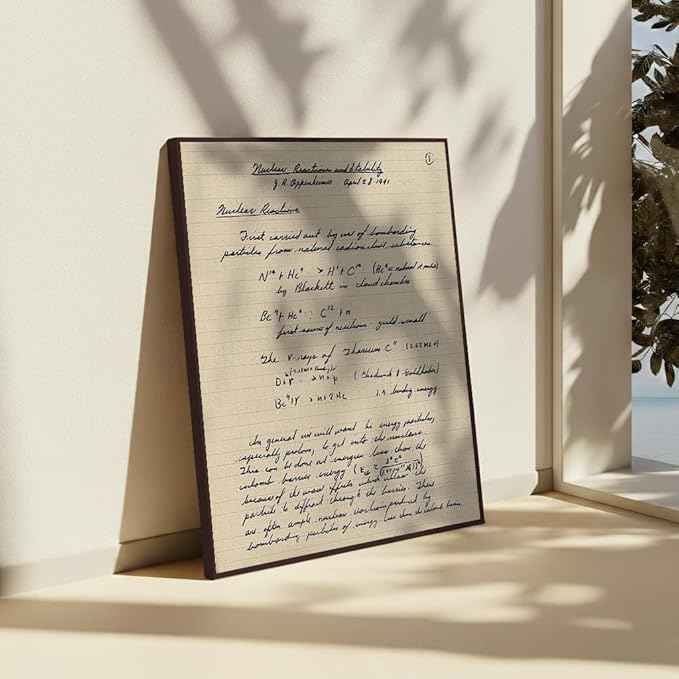 1
Nuclear Reactions and Stability
J. R. Oppenheimer April 28 1941
Nuclear Reactions
First carried out by use of bombarding
particles from natural radioactive substances
N¹⁴ + He⁴ → H¹ + O¹⁷ (He⁴ = natural α particle)
by Blackett in cloud chamber
Be⁹ + He⁴ : C¹² + n
first source of neutrons yield small
The γ-rays of Thorium C" (2.62 MeV)
D + γ → n + p (Chadwick & Goldhaber)
Be⁹ + γ → n + 2 He binding energy
In general we will want hi energy particles,
especially protons, to get into the nucleus.
This can be done at energies less than the
coulomb barrier energy
because of the wave effects which allow the
particle to diffract through the barrier. There
are often ample nuclear reactions produced by
bombarding particles of energy less than the coulomb barrier